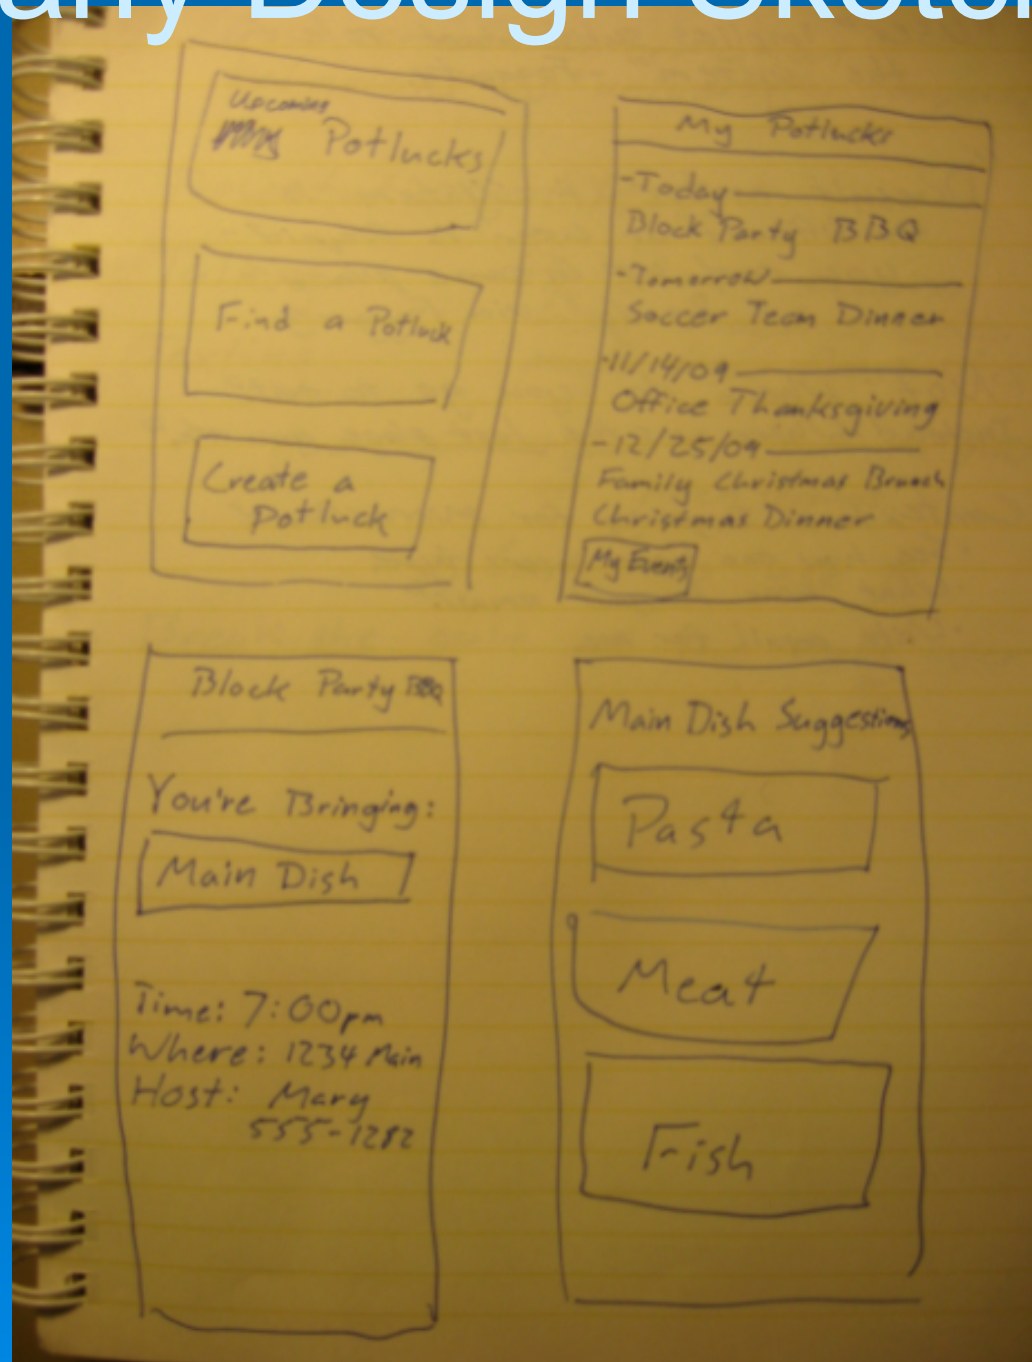 any Design Sketch
Upcoming
My Potlucks
Find a Potluck
Create a
Potluck
My Potlucks
-Today
Block Party BBQ
-Tomorrow
Soccer Team Dinner
-11/14/09
Office Thanksgiving
-12/25/09
Family Christmas Brunch
Christmas Dinner
My Events
Block Party BBQ
You're Bringing:
Main Dish
Time: 7:00pm
Where: 1234 Main
Host: Mary
555-1282
Main Dish Suggestions
Pasta
Meat
Fish